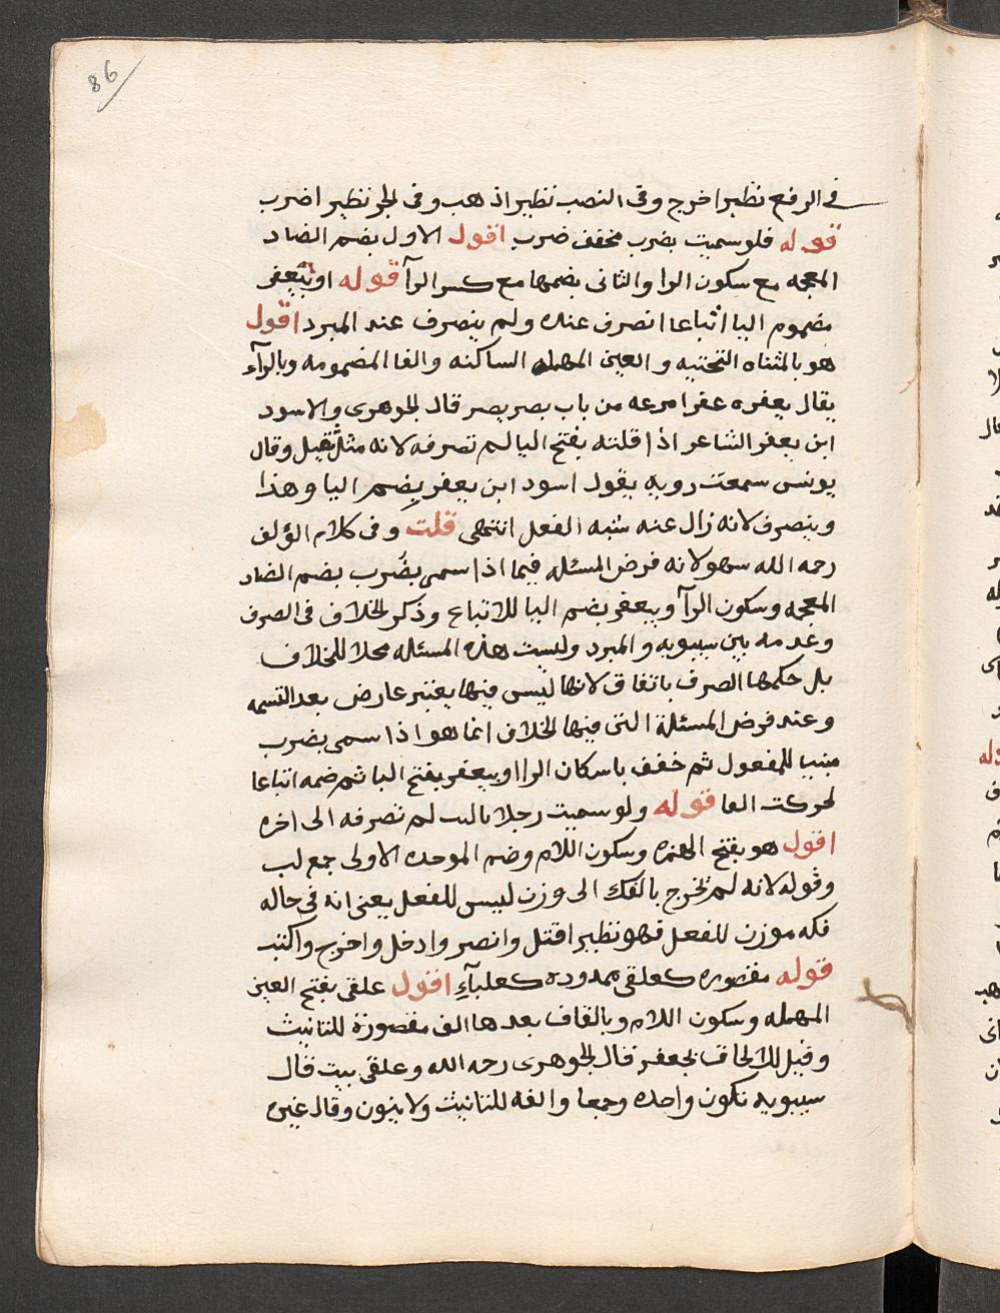 86
في الرفع نظير اخرج وفي النصب نظير اذهب وفي الجر نظير اضرب
قوله فلو سميت بضرب مخفف ضرب اقول الاول بضم الضاد
المعجمه مع سكون الرا والثاني بضمها مع كسر الرآ قوله او بيعفر
مضموم اليا اتباعا انصرف عنده ولم ينصرف عند المبرد اقول
هو بالمثناه التحتيه والعين المهمله الساكنه والفا المضمومه وبالرآء
يقال يعفره عفرا مرعه من باب بصر يصر قال الجوهرى والاسود
ابن يعفر الشاعر اذا قلته بفتح اليا لم تصرفه لانه مثل يقبل وقال
يونس سمعت روبه يقول اسود ابن يعفر بضم اليا وهذا
وينصرف لانه زال عنه شبه الفعل انتهى قلت وفي كلام المؤلف
رحمه الله سهو لانه فرض المسئله فيما اذا سمى بضرب بضم الضاد
المعجمه وسكون الرآ وبيعفر بضم اليا للاتباع وذكر الخلاف في الصرف
وعدمه بين سيبويه والمبرد وليست هذه المسئله محلا للخلاف
بل حكمها الصرف باتفاق لانها ليس فيها يغير عارض بعد التسمه
وعند فرض المسئلة التي فيها الخلاف انما هو اذا سمى بضرب
مبنيا للمفعول ثم خفف باسكان الرا او بيعفر بفتح اليا ثم ضمه اتباعا
لحركت الفا قوله ولو سميت رجلا بالبب لم تصرفه الى اخره
اقول هو بفتح الهمزه وسكون اللام وضم الموحده الاولى جمع لب
وقوله لانه لم يخرج بالفك الى وزن ليس للفعل يعنى انه في حاله
فكه موزن للفعل فهو نظير اقتل وانصر وادخل واخرج واكتب
قوله مقصوره كعلقى ممدوده كعلبآء اقول علقى بفتح العين
المهمله وسكون اللام وبالقاف بعدها الف مقصورة للتانيث
وقيل للالحاق بجعفر قال الجوهرى رحمه الله وعلقى بيت قال
سيبويه تكون واحده وجمعا والفه للتانيث ولا ينون وقال غيره